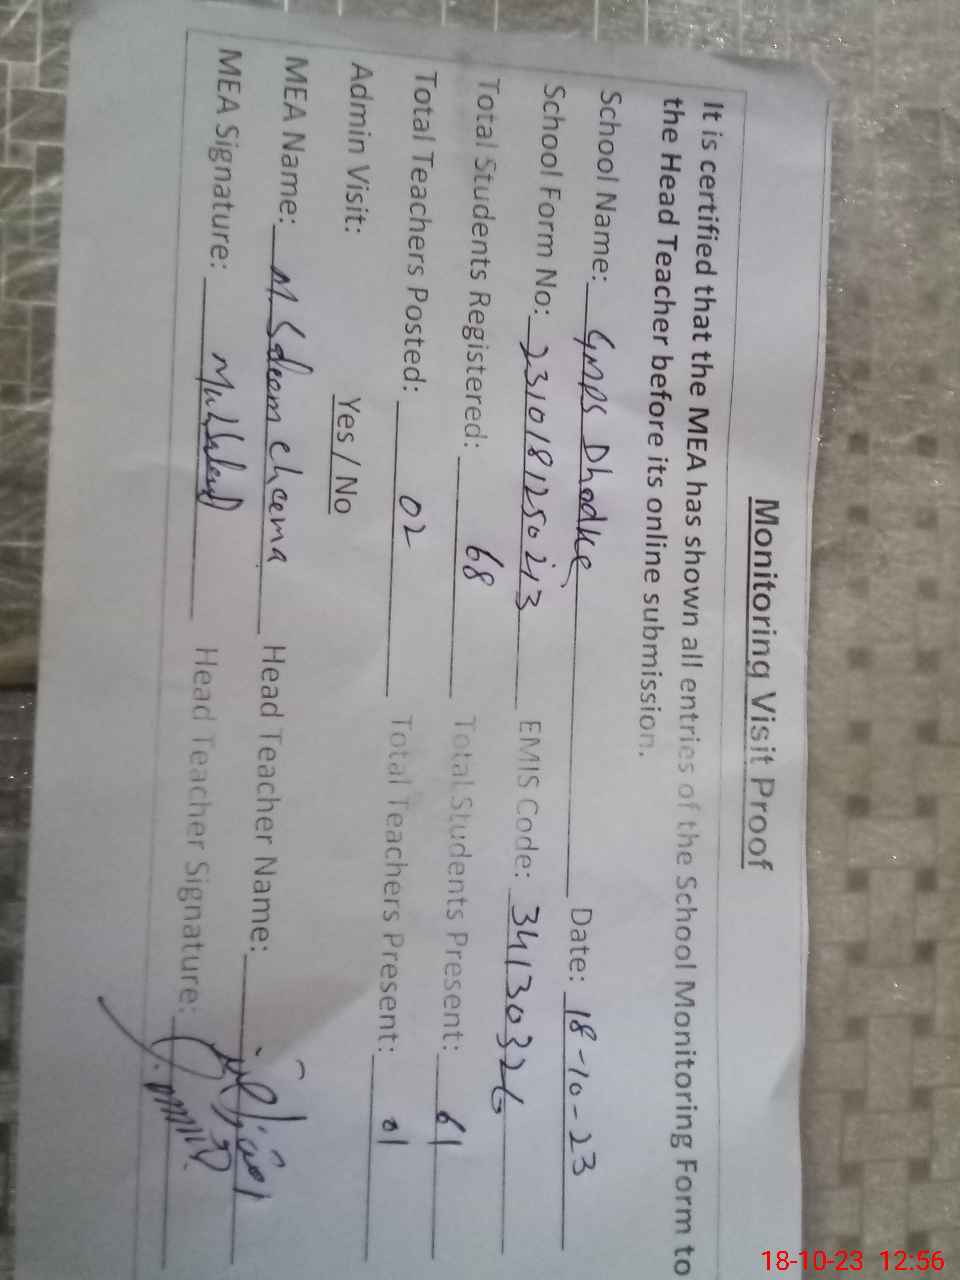 Monitoring Visit Proof
It is certified that the MEA has shown all entries of the School Monitoring Form to
the Head Teacher before its online submission.
School Name: GMPS Dhodke Date: 18-10-23
School Form No: 2310181250213 EMIS Code: 34130326
Total Students Registered: 68 Total Students Present: 61
Total Teachers Posted: 02 Total Teachers Present: 01
Admin Visit: Yes / No
MEA Name: M Head Teacher Name:
MEA Signature: Head Teacher Signature:
18-10-23 12:56